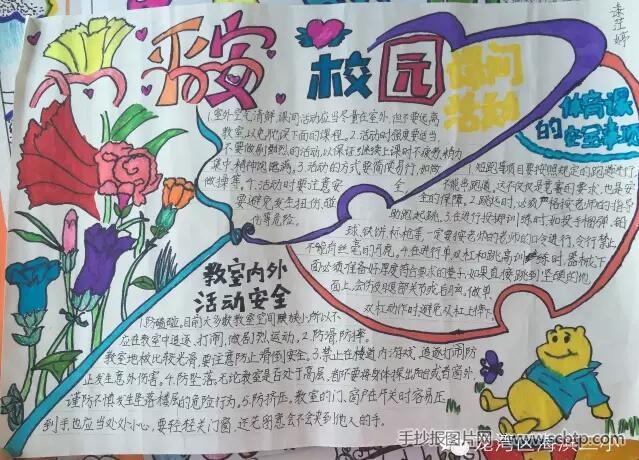 平安校园
课间
活动
1.室外空气清鲜,课间活动应当尽量在室外,但不要远离
教室,以免耽误下面的课程。2.活动时强度要适当,
不要做剧烈的活动,以保证继续上课时不疲劳,精力
集中,精神饱满。3.活动的方式要简便易行,如做
做操等。4.活动时要注意安全,
要避免发生扭伤,碰
伤等危险。
体育课
的安全事项
1.短跑等项目要按照规定的跑道进行,
不能串跑道,这不仅仅是竞赛的要求,也是安
全的保障。2.跳远时,必须严格按老师的指导
助跑、起跳。3.在进行投掷训练时,如投手榴弹、铅
球、铁饼、标枪等,一定要按老师的口令进行,令行禁止,
不能有丝毫的马虎。4.在进行单双杠和跳高训练时,器械下
面必须准备好厚度符合要求的垫子,如果直接跳到坚硬的地
面上,会伤及腿部关节或后脑。做单
双杠动作时避免双杠上摔下。
教室内外
活动安全
1.防磕碰。目前大多数教室空间狭小,所以不
应在教室中追逐、打闹,做剧烈运动。2.防滑、防摔。
教室地板比较光滑,要注意防止滑倒安全。3.禁止在楼道内游戏,追逐打闹,防
止发生意外伤害。4.防坠落。无论教室是否处于高层,都不要将身体探出阳台或者窗外,
谨防不慎发生坠落楼层的危险行为。5.防挤压。教室的门、窗户在开关时容易压
到手,也应当处处小心,要轻轻关门窗,还
会不会夹到他人的手。
手抄报图片大全网
www.scbtp.com
龙湾区海滨二小